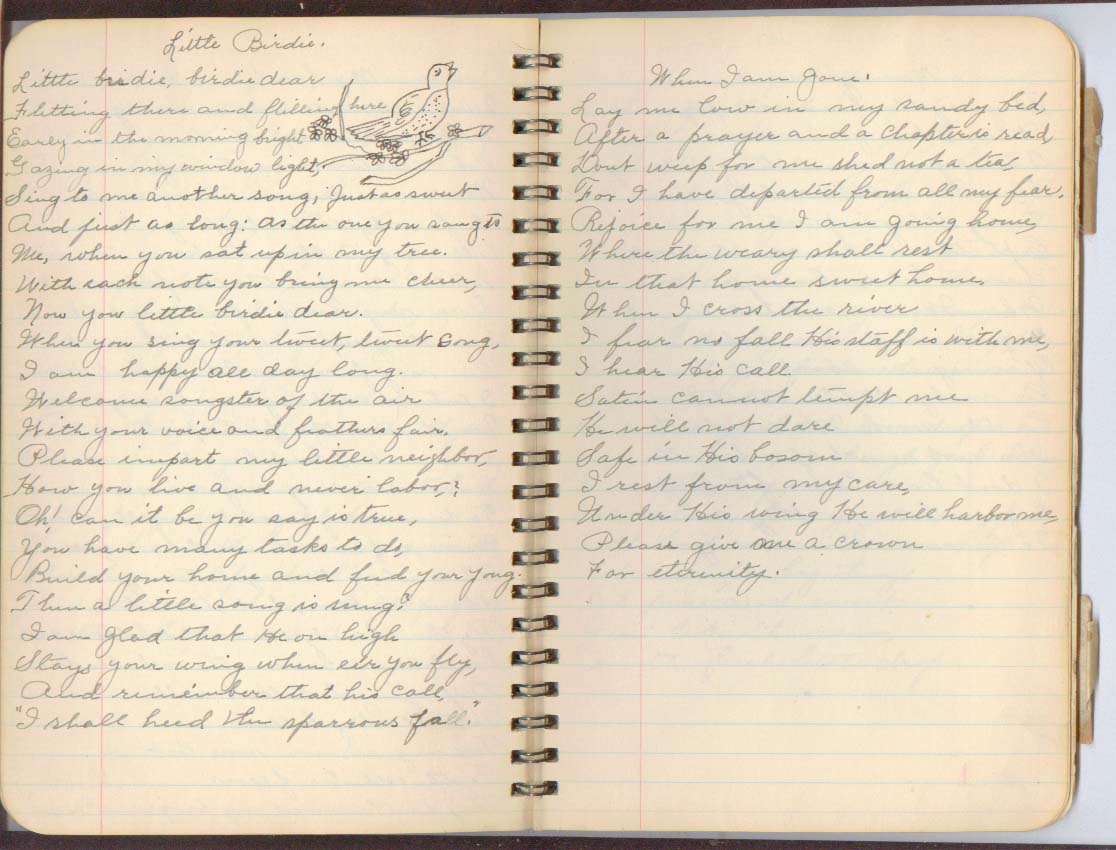 Little Birdie.
Little birdie, birdie dear
Flitting there and flitting here
Earley in the morning bight
Gazing in my window light,
Sing to me another song; Just as sweet
And just as long: as the one you sang to
Me, when you sat up in my tree.
With each note you bring me cheer,
Now you little birdie dear.
When you sing your tweet, tweet song,
I am happy all day long.
Welcome songster of the air
With your voice and feathers fair.
Please impart my little neighbor,
How you live and never labor,?
Oh! can it be you say is true,
You have many tasks to do,
Build your home and feed your yong.
Then a little song is sung?
I am glad that He on high
Stays your wing when eer you fly,
And remember that his call,
"I shall heed the sparrows fall."
When I am gone.
Lay me low in my sandy bed,
After a prayer and a chapter is read,
Dont weep for me shed not a tear,
For I have departed from all my fear.
Rejoice for me I am going home,
Where the weary shall rest
In that home sweet home.
When I cross the river
I fear no fall His staff is with me,
I hear His call.
Satin cannot tempt me
He will not dare
Safe in His bosom
I rest from my care,
Under His wing He will harbor me,
Please give me a crown
For eternity.